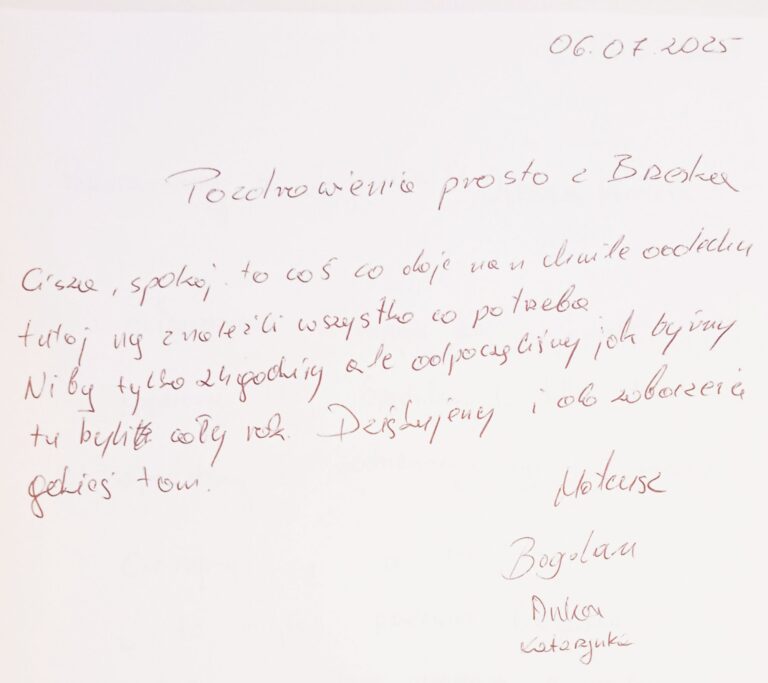 06.07.2025
Pozdrowienia prosto z Brzeska
Cisza, spokój. to coś co daje nam chwile oddechu
tutaj my znaleźli wszystko co potrzeba
Niby tylko 2 tygodnie ale odpoczęliśmy jak byśmy
tu byli cały rok. Dziękujemy i do zobaczenia
gdzieś tam.
Mateusz
Bogdan
Katarzynka